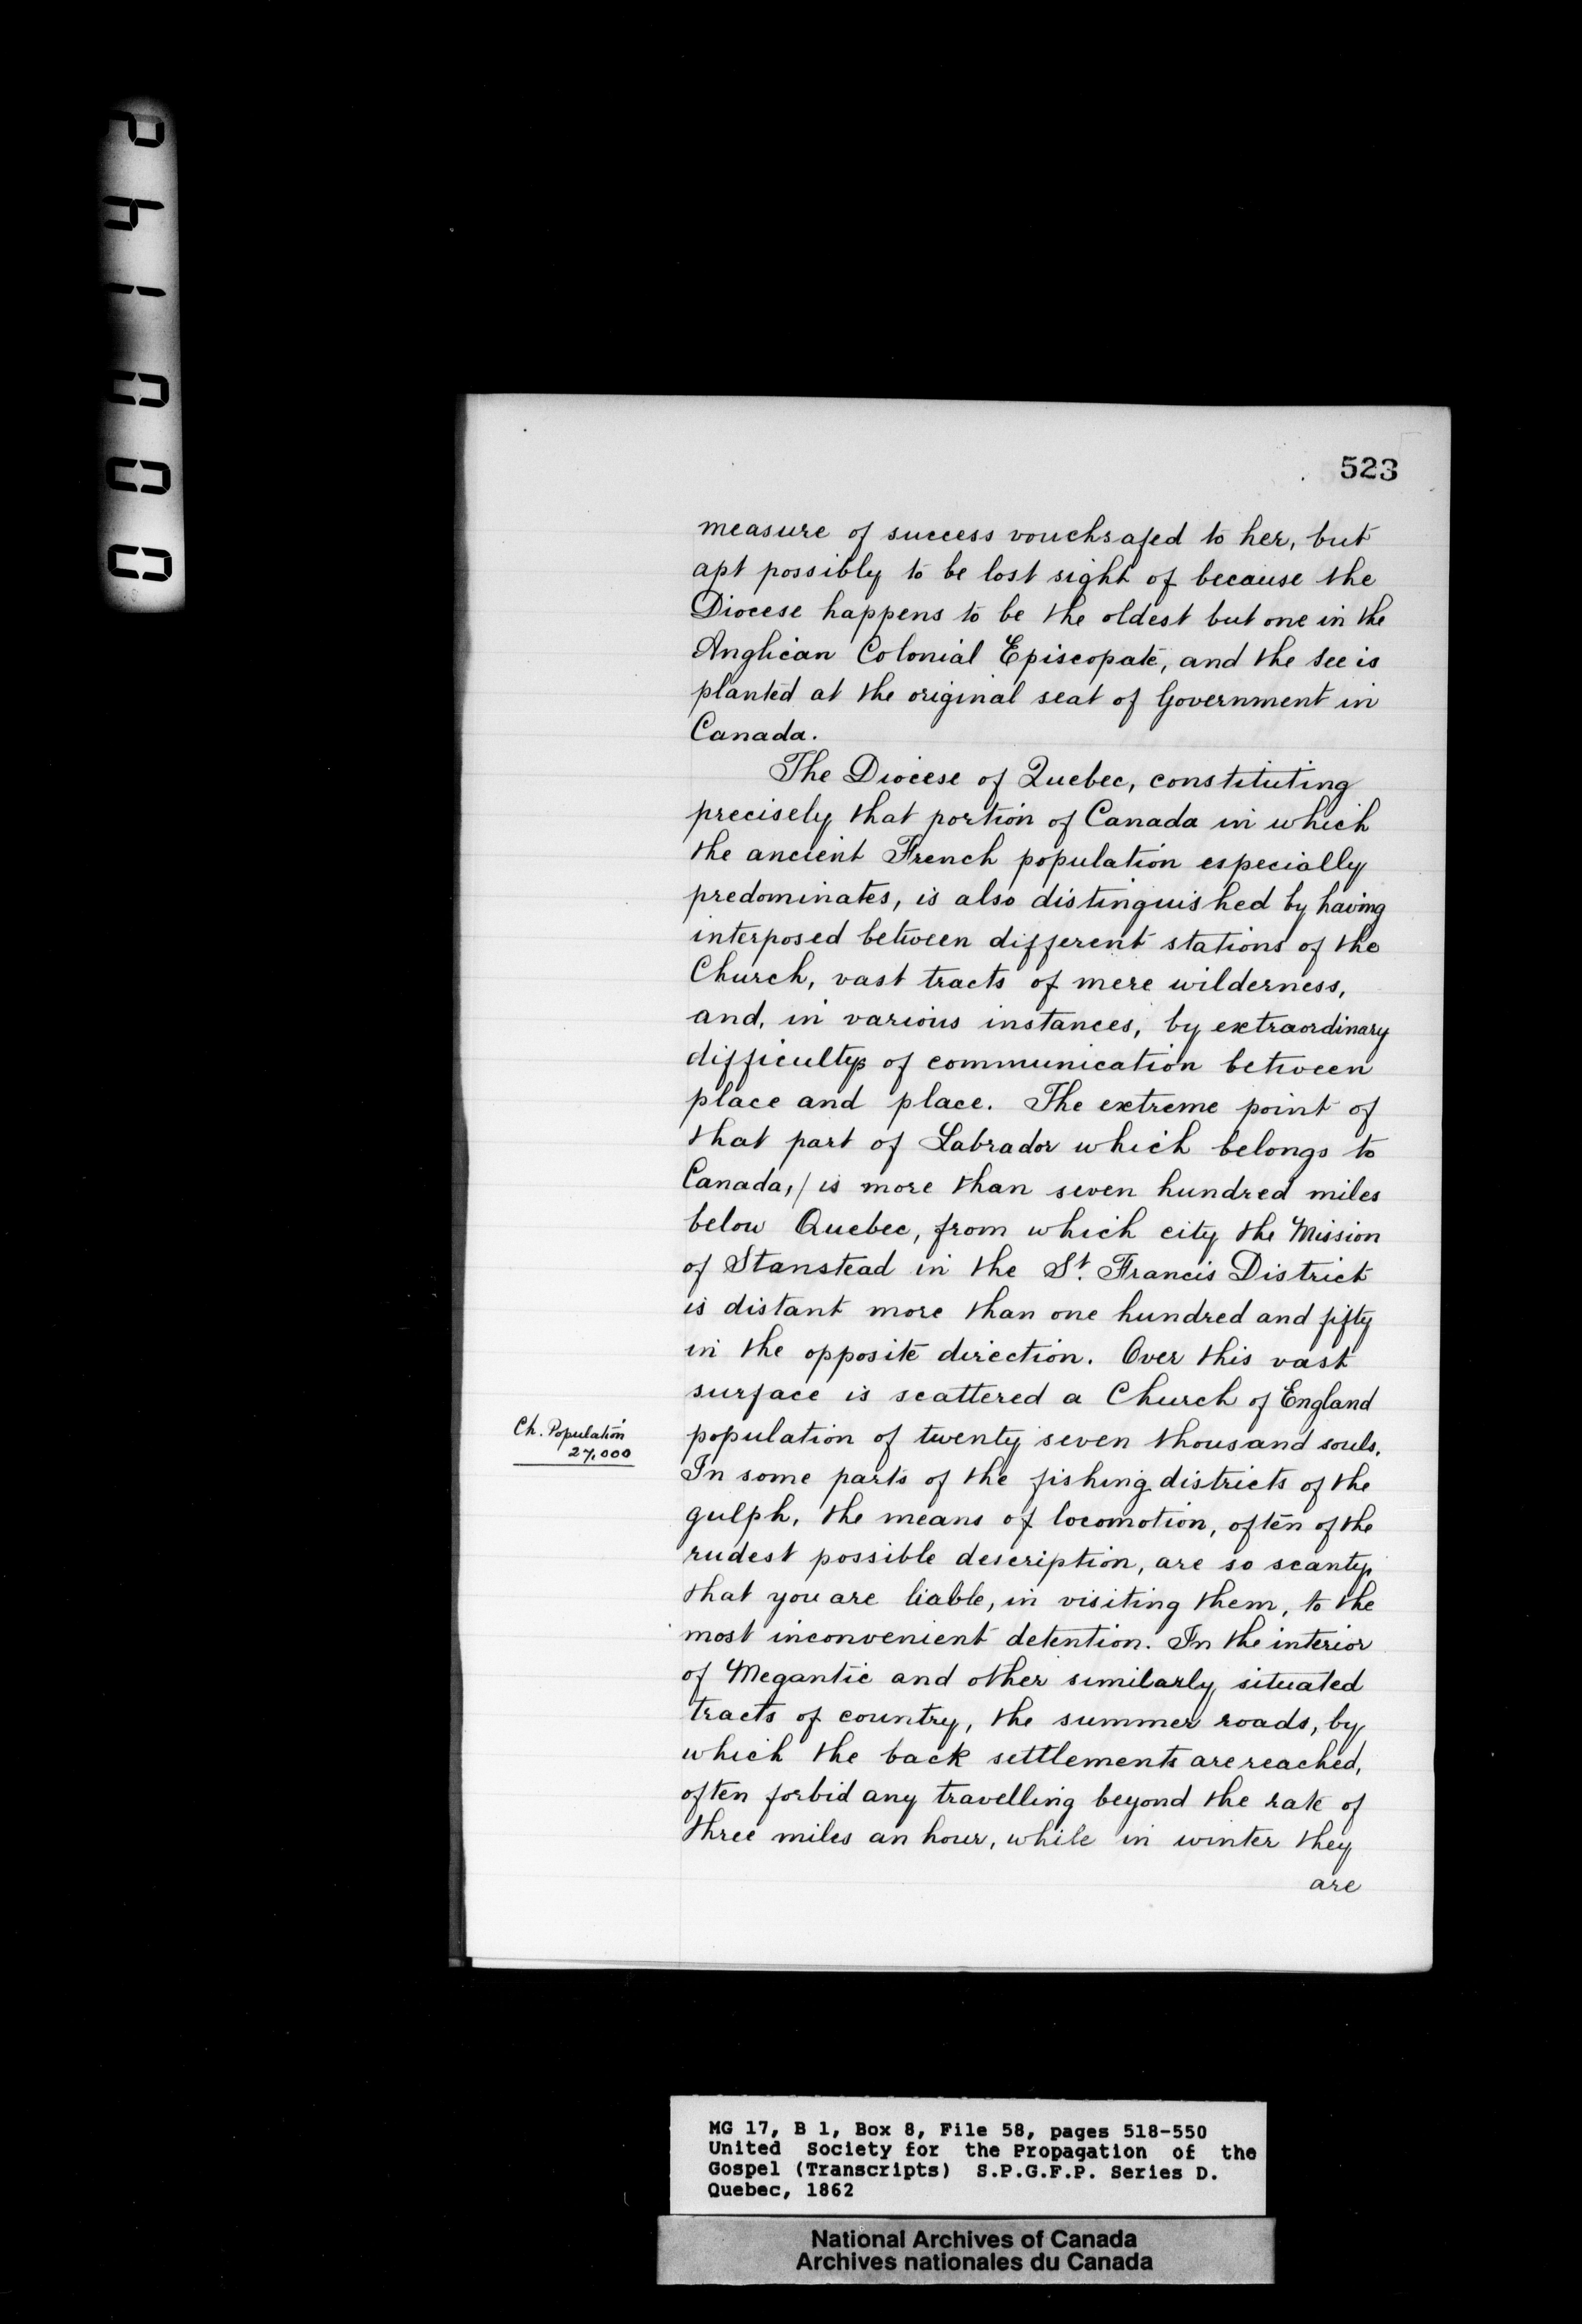 000142
523
measure of success vouchsafed to her, but
apt possibly to be lost sight of because the
Diocese happens to be the oldest but one in the
Anglican Colonial Episcopate, and the see is
planted at the original seat of Government in
Canada.
The Diocese of Quebec, constituting
precisely that portion of Canada in which
the ancient French population especially
predominates, is also distinguished by having
interposed between different stations of the
Church, vast tracts of mere wilderness,
and, in various instances, by extraordinary
difficultys of communication between
place and place. The extreme point of
that part of Labrador which belongs to
Canada, / is more than seven hundred miles
below Quebec, from which city the Mission
of Stanstead in the St. Francis District
is distant more than one hundred and fifty
in the opposite direction. Over this vast
surface is scattered a Church of England
Ch. Population
27,000
population of twenty seven thousand souls.
In some parts of the fishing districts of the
gulph, the means of locomotion, often of the
rudest possible description, are so scanty,
that you are liable, in visiting them, to the
most inconvenient detention. In the interior
of Megantic and other similarly situated
tracts of country, the summer roads, by
which the back settlements are reached,
often forbid any travelling beyond the rate of
three miles an hour, while in winter they
are
MG 17, B 1, Box 8, File 58, pages 518-550
United Society for the Propagation of the
Gospel (Transcripts) S.P.G.F.P. Series D.
Quebec, 1862
National Archives of Canada
Archives nationales du Canada